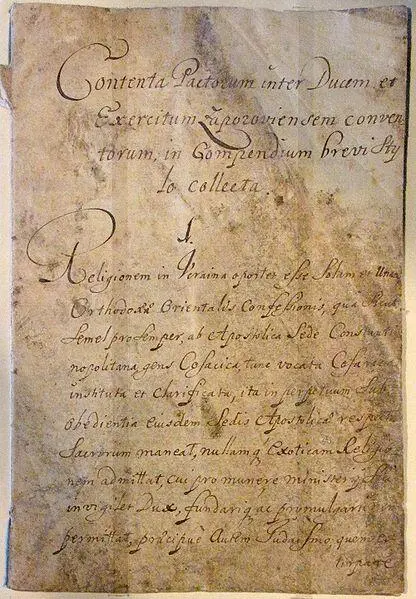 Contenta Pactorum inter Ducem et
Exercitum Zaporoviensem conven
torum, in Compendium brevi Sty
lo collecta.
1.
Religionem in Ucraina oportet esse Solam et Unam
Orthodoxæ Orientalis Confessionis, qua
semel pro semper, ab Apostolica Sede Constanti
nopolitana, gens Cosacica, tunc vocata
instituta et clarificata, ita in perpetuum sub
obedientia eiusdem Sedis Apostolicæ respectu
Sacrorum maneat, nullamq Exoticam Religio
nem admittat, cui pro munere
invigilet Dux, fundariq ac promulgari
permittat, præcipuè autem Judaismo, quem
tirpare